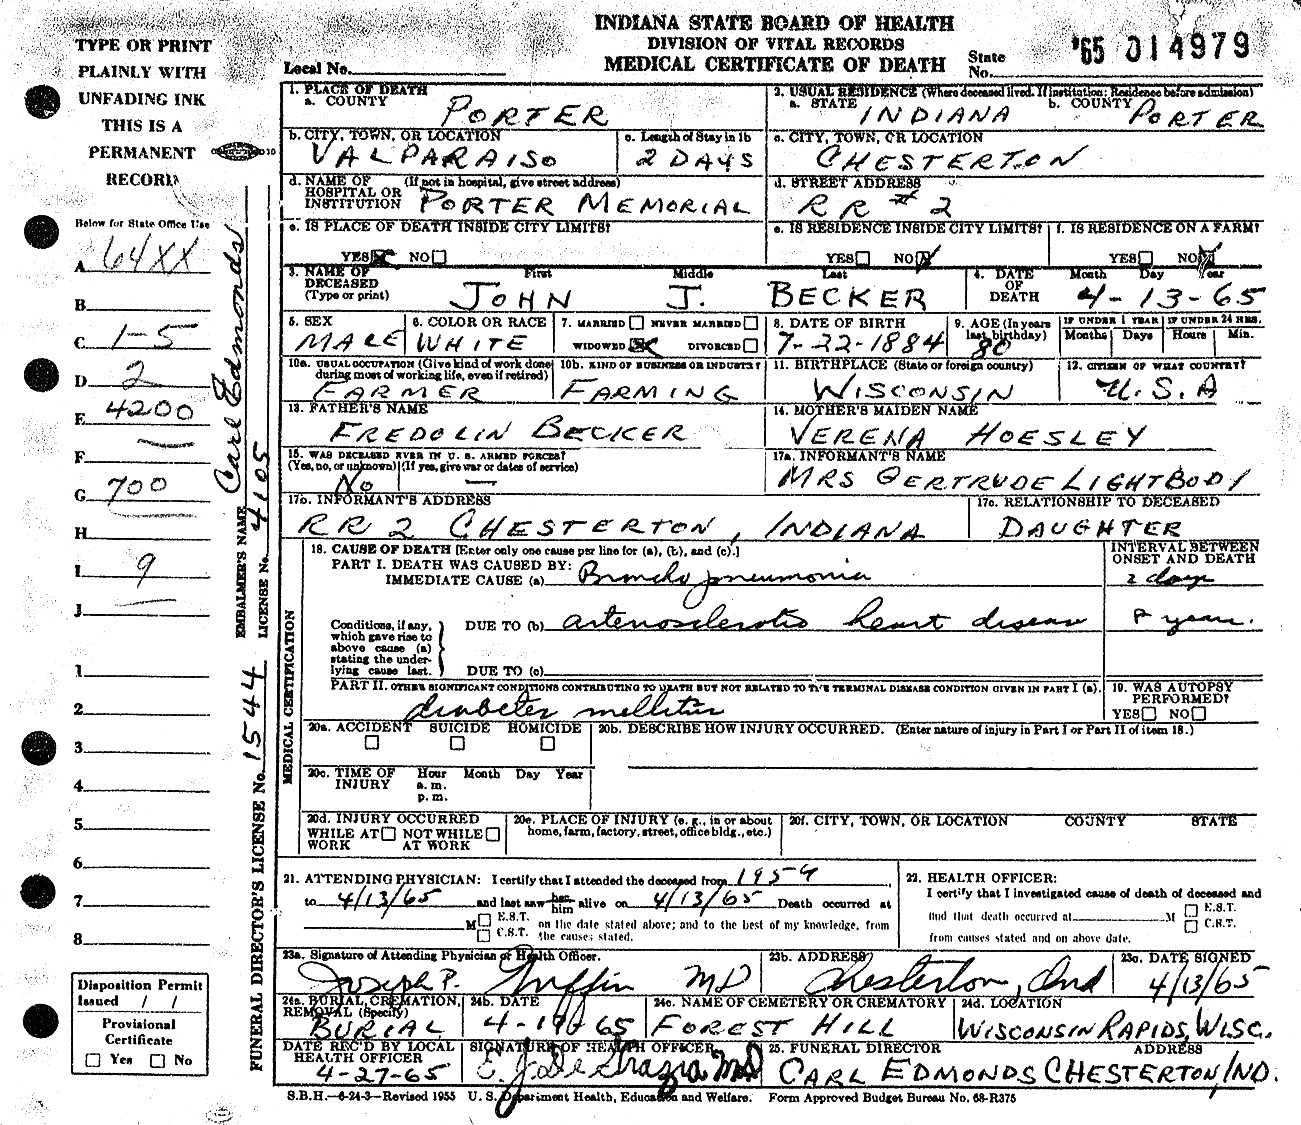 INDIANA STATE BOARD OF HEALTH
DIVISION OF VITAL RECORDS
MEDICAL CERTIFICATE OF DEATH
Local No.
State No. '65 014979
TYPE OR PRINT
PLAINLY WITH
UNFADING INK
THIS IS A
PERMANENT
RECORD
Below for State Office Use
A 64XX
B
C 1-5
D 2
E 4200
F
G 700
H
I 9
J
1
2
3
4
5
6
7
8
Disposition Permit
Issued / /
Provisional
Certificate
Yes No
EMBALMER'S NAME Carl Edmonds
LICENSE No. 4105
FUNERAL DIRECTOR'S LICENSE No. 1544
1. PLACE OF DEATH
a. COUNTY PORTER
2. USUAL RESIDENCE (Where deceased lived. If institution: Residence before admission)
a. STATE INDIANA b. COUNTY PORTER
b. CITY, TOWN, OR LOCATION VALPARAISO
c. Length of Stay in 1b 2 DAYS
c. CITY, TOWN, OR LOCATION CHESTERTON
d. NAME OF HOSPITAL OR INSTITUTION (If not in hospital, give street address) PORTER MEMORIAL
d. STREET ADDRESS RR # 2
e. IS PLACE OF DEATH INSIDE CITY LIMITS?
YES NO
e. IS RESIDENCE INSIDE CITY LIMITS?
YES NO
f. IS RESIDENCE ON A FARM?
YES NO
3. NAME OF DECEASED (Type or print) First Middle Last
JOHN J. BECKER
4. DATE OF DEATH Month Day Year
4-13-65
5. SEX MALE
6. COLOR OR RACE WHITE
7. MARRIED NEVER MARRIED
WIDOWED DIVORCED
8. DATE OF BIRTH 7-22-1884
9. AGE (In years last birthday) 80
IF UNDER 1 YEAR Months Days
IF UNDER 24 HRS. Hours Min.
10a. USUAL OCCUPATION (Give kind of work done during most of working life, even if retired) FARMER
10b. KIND OF BUSINESS OR INDUSTRY FARMING
11. BIRTHPLACE (State or foreign country) WISCONSIN
12. CITIZEN OF WHAT COUNTRY? U.S.A
13. FATHER'S NAME FREDOLIN BECKER
14. MOTHER'S MAIDEN NAME VERENA HOESLEY
15. WAS DECEASED EVER IN U. S. ARMED FORCES?
(Yes, no, or unknown) (If yes, give war or dates of service)
No —
17a. INFORMANT'S NAME MRS GERTRUDE LIGHTBODY
17b. INFORMANT'S ADDRESS RR 2 CHESTERTON, INDIANA
17c. RELATIONSHIP TO DECEASED DAUGHTER
MEDICAL CERTIFICATION
18. CAUSE OF DEATH [Enter only one cause per line for (a), (b), and (c).]
INTERVAL BETWEEN ONSET AND DEATH
PART I. DEATH WAS CAUSED BY:
IMMEDIATE CAUSE (a) Broncho pneumonia 2 days
Conditions, if any, which gave rise to above cause (a) stating the underlying cause last.
DUE TO (b) arteriosclerotic heart disease years.
DUE TO (c)
PART II. OTHER SIGNIFICANT CONDITIONS CONTRIBUTING TO DEATH BUT NOT RELATED TO THE TERMINAL DISEASE CONDITION GIVEN IN PART I (a).
diabetes mellitus
19. WAS AUTOPSY PERFORMED?
YES NO
20a. ACCIDENT SUICIDE HOMICIDE
20b. DESCRIBE HOW INJURY OCCURRED. (Enter nature of injury in Part I or Part II of item 18.)
20c. TIME OF INJURY Hour Month Day Year
a. m.
p. m.
20d. INJURY OCCURRED
WHILE AT WORK NOT WHILE AT WORK
20e. PLACE OF INJURY (e. g., in or about home, farm, factory, street, office bldg., etc.)
20f. CITY, TOWN, OR LOCATION COUNTY STATE
21. ATTENDING PHYSICIAN: I certify that I attended the deceased from 1959
to 4/13/65 and last saw her him alive on 4/13/65 Death occurred at
M E.S.T. C.S.T. on the date stated above; and to the best of my knowledge, from the causes stated.
22. HEALTH OFFICER:
I certify that I investigated cause of death of deceased and
find that death occurred at M E.S.T. C.S.T.
from causes stated and on above date.
23a. Signature of Attending Physician or Health Officer. Joseph P. Griffin MD
23b. ADDRESS Chesterton, Ind
23c. DATE SIGNED 4/13/65
24a. BURIAL, CREMATION, REMOVAL (Specify) BURIAL
24b. DATE 4-19-65
24c. NAME OF CEMETERY OR CREMATORY FOREST HILL
24d. LOCATION WISCONSIN RAPIDS, WISC.
DATE REC'D BY LOCAL HEALTH OFFICER 4-27-65
SIGNATURE OF HEALTH OFFICER E. J. DeGrazia MD
25. FUNERAL DIRECTOR ADDRESS
CARL EDMONDS CHESTERTON, IND.
S.B.H.—6-24-3—Revised 1955 U. S. Department Health, Education and Welfare. Form Approved Budget Bureau No. 68-R375